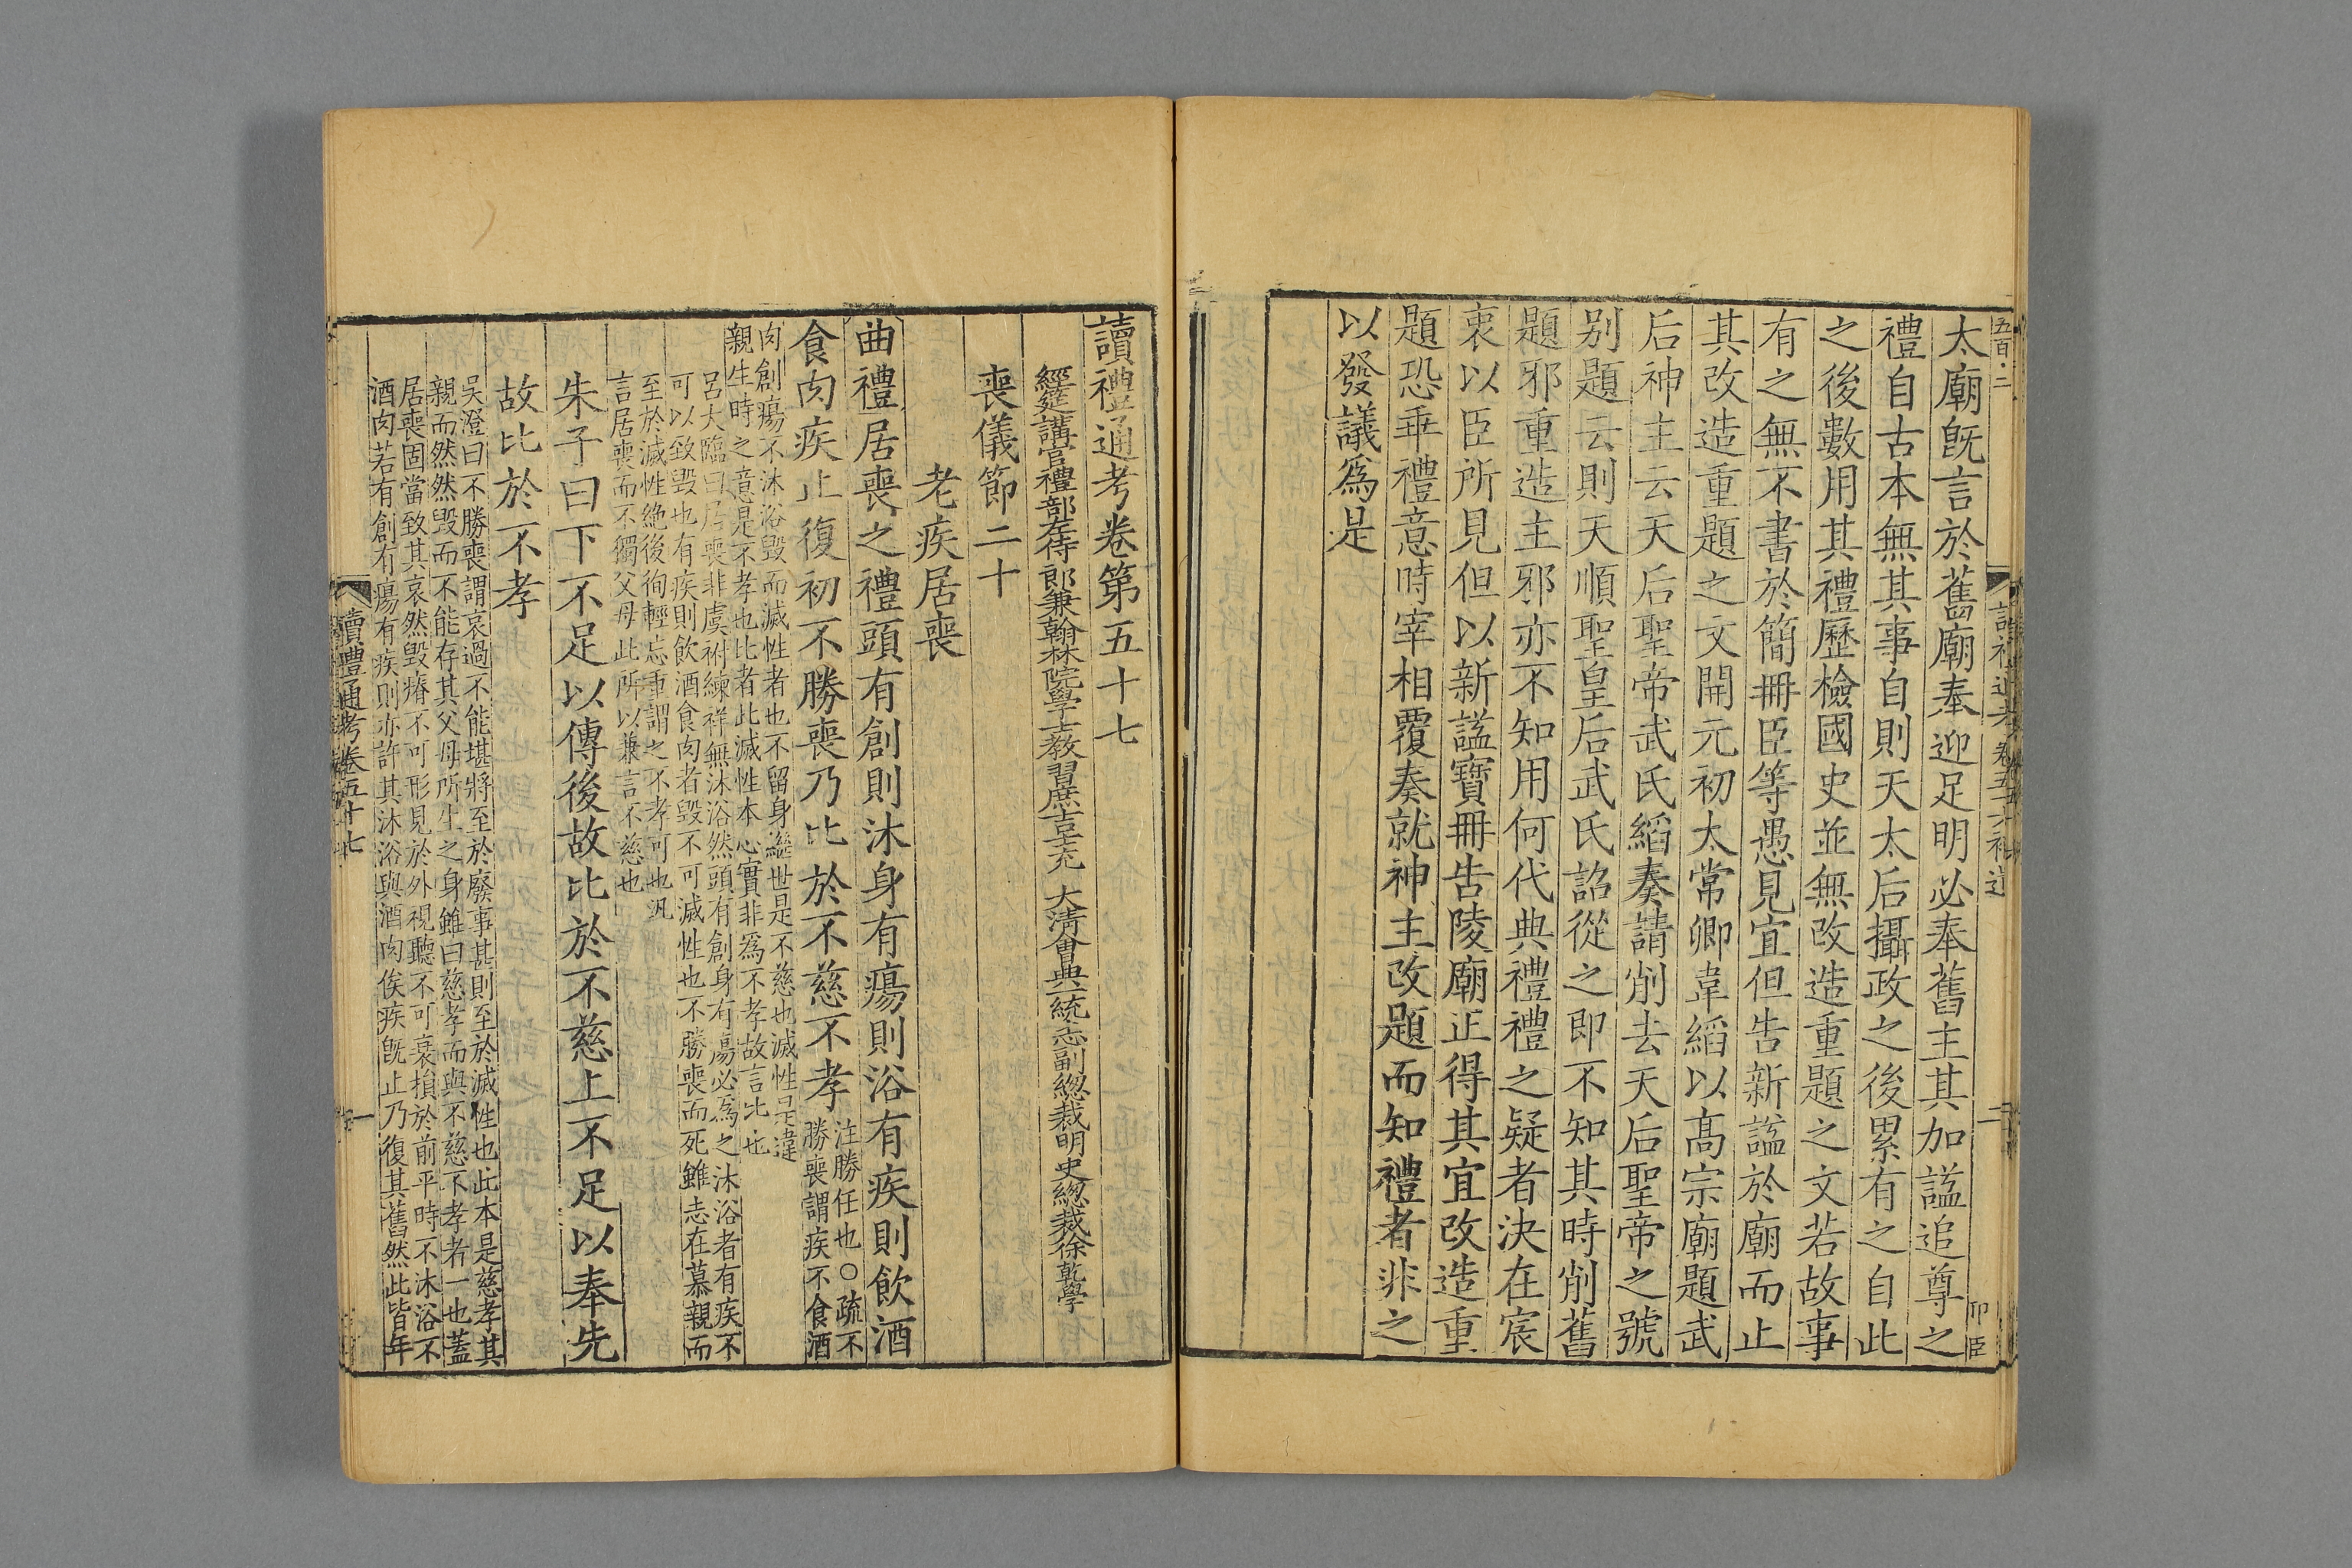 太廟旣言於舊廟奉迎足明必奉舊主其加謚追尊之
禮自古本無其事自則天太后攝政之後累有之自此
之後數用其禮歷檢國史並無改造重題之文若故事
有之無不書於簡冊臣等愚見宜但告新謚於廟而止
其改造重題之文開元初太常卿韋縚以髙宗廟題武
后神主云天后聖帝武氏縚奏請削去天后聖帝之號
别題云則天順聖皇后武氏詔從之即不知其時削舊
題邪重造主邪亦不知用何代典禮禮之疑者決在宸
衷以臣所見但以新謚寶冊告陵廟正得其宜改造重
題恐乖禮意時宰相覆奏就神主改題而知禮者非之
以發議爲是
讀禮通考卷第五十七
經筵講官禮部左侍郎兼翰林院學士教習庶吉士充 大清會典一統志副總裁明史總裁徐乾學
喪儀節二十
老疾居喪
曲禮居喪之禮頭有創則沐身有瘍則浴有疾則飲酒
食肉疾止復初不勝喪乃比於不慈不孝
注勝任也○疏不
勝喪謂疾不食酒
肉創瘍不沐浴毀而滅性者也不留身繼世是不慈也滅性是違
親生時之意是不孝也比者此滅性本心實非爲不孝故言比也
呂大臨曰居喪非虞祔練祥無沐浴然頭有創身有瘍必爲之沐浴者有疾不
可以致毀也有疾則飲酒食肉者毀不可滅性也不勝喪而死雖志在慕親而
至於滅性絶後徇輕忘重謂之不孝可也汎
言居喪而不獨父母此所以兼言不慈也
朱子曰下不足以傳後故比於不慈上不足以奉先
故比於不孝
吳澄曰不勝喪謂哀過不能堪將至於廢事甚則至於滅性也此本是慈孝其
親而然然毀而不能存其父母所生之身雖曰慈孝而與不慈不孝者一也蓋
居喪固當致其哀然毀瘠不可形見於外視聽不可衰損於前平時不沐浴不
酒肉若有創有瘍有疾則亦許其沐浴與酒肉俟疾旣止乃復其舊然此皆年
讀禮通考卷五十七
一